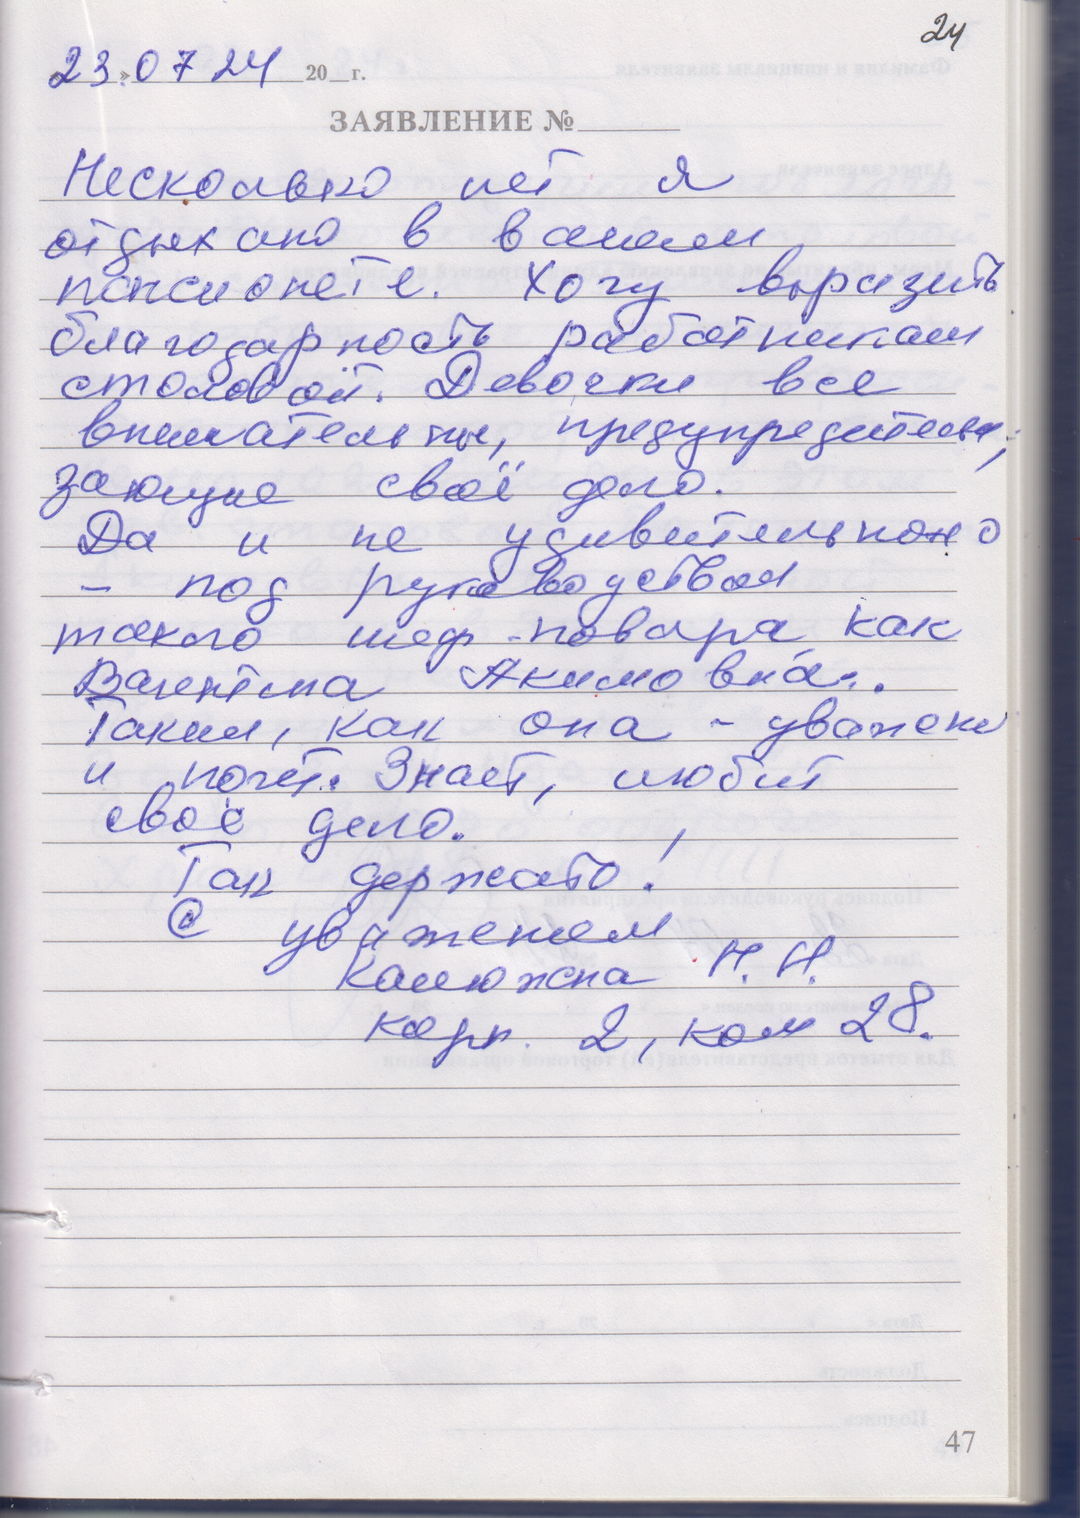 24
23.07 24 20 г.
ЗАЯВЛЕНИЕ №
Несколько лет я
отдыхаю в вашем
пансионете. Хочу выразить
благодарность работникам
столовой. Девочки все
внимательны, предупредительны,
знающие своё дело.
Да и не удивительно
– под руководством
такого шеф-повара, как
Валентина Акимовна.
Таким, как она – уважение
и почёт. Знает, любит
своё дело.
Так держать!
С уважением
Калюжная Н. Н.
корп. 2, ком 28.
47